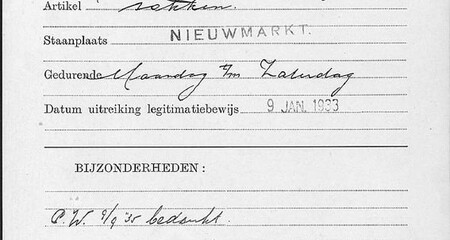 Artikel sokken.
Staanplaats NIEUWMARKT.
Gedurende Maandag t/m Zaterdag
Datum uitreiking legitimatiebewijs 9 JAN. 1933
BIJZONDERHEDEN :
P.W. 9/9 '35 bedankt.